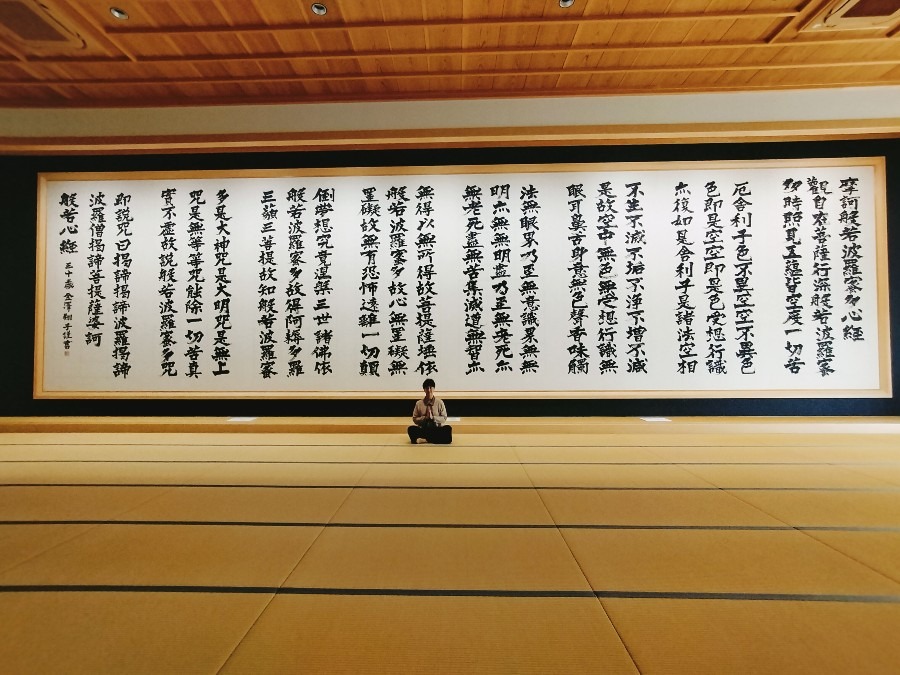 摩訶般若波羅蜜多心經
觀自在菩薩行深般若波羅蜜
多時照見五蘊皆空度一切苦
厄舍利子色不異空空不異色
色即是空空即是色受想行識
亦復如是舍利子是諸法空相
不生不滅不垢不淨不增不減
是故空中無色無受想行識無
眼耳鼻舌身意無色聲香味觸
法無眼界乃至無意識界無無
明亦無無明盡乃至無老死亦
無老死盡無苦集滅道無智亦
無得以無所得故菩提薩埵依
般若波羅蜜多故心無罣礙無
罣礙故無有恐怖遠離一切顛
倒夢想究竟涅槃三世諸佛依
般若波羅蜜多故得阿耨多羅
三藐三菩提故知般若波羅蜜
多是大神咒是大明咒是無上
咒是無等等咒能除一切苦真
實不虛故說般若波羅蜜多咒
即說咒曰揭諦揭諦波羅揭諦
波羅僧揭諦菩提薩婆訶
般若心經
金澤翔子謹書